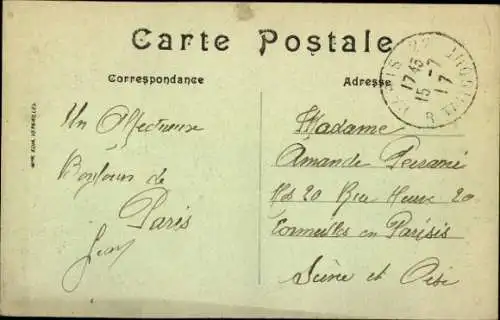 Carte Postale
Correspondance
Adresse
PARIS 22
17 45
15 - 7
17
Un Affectueux
Bonjour de
Paris
Jean
Madame
Amande
No 20 Rue 20
Cormeilles en Parisis
Seine et Oise